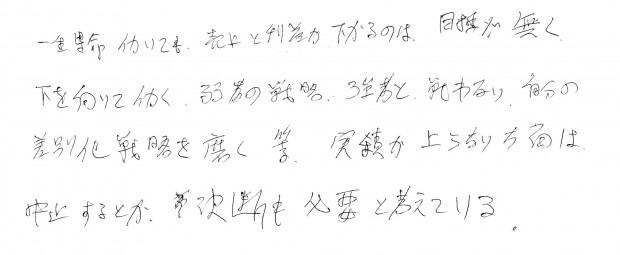 一生懸命 仂いても、売上と利益が下がるのは、目標が無く、
下を向いて仂く、弱者の戦略、強者と、戦わない、自分の
差別化戦略を磨く等、実績が上らない方面は、
中止するとか、決断も必要と考えている。